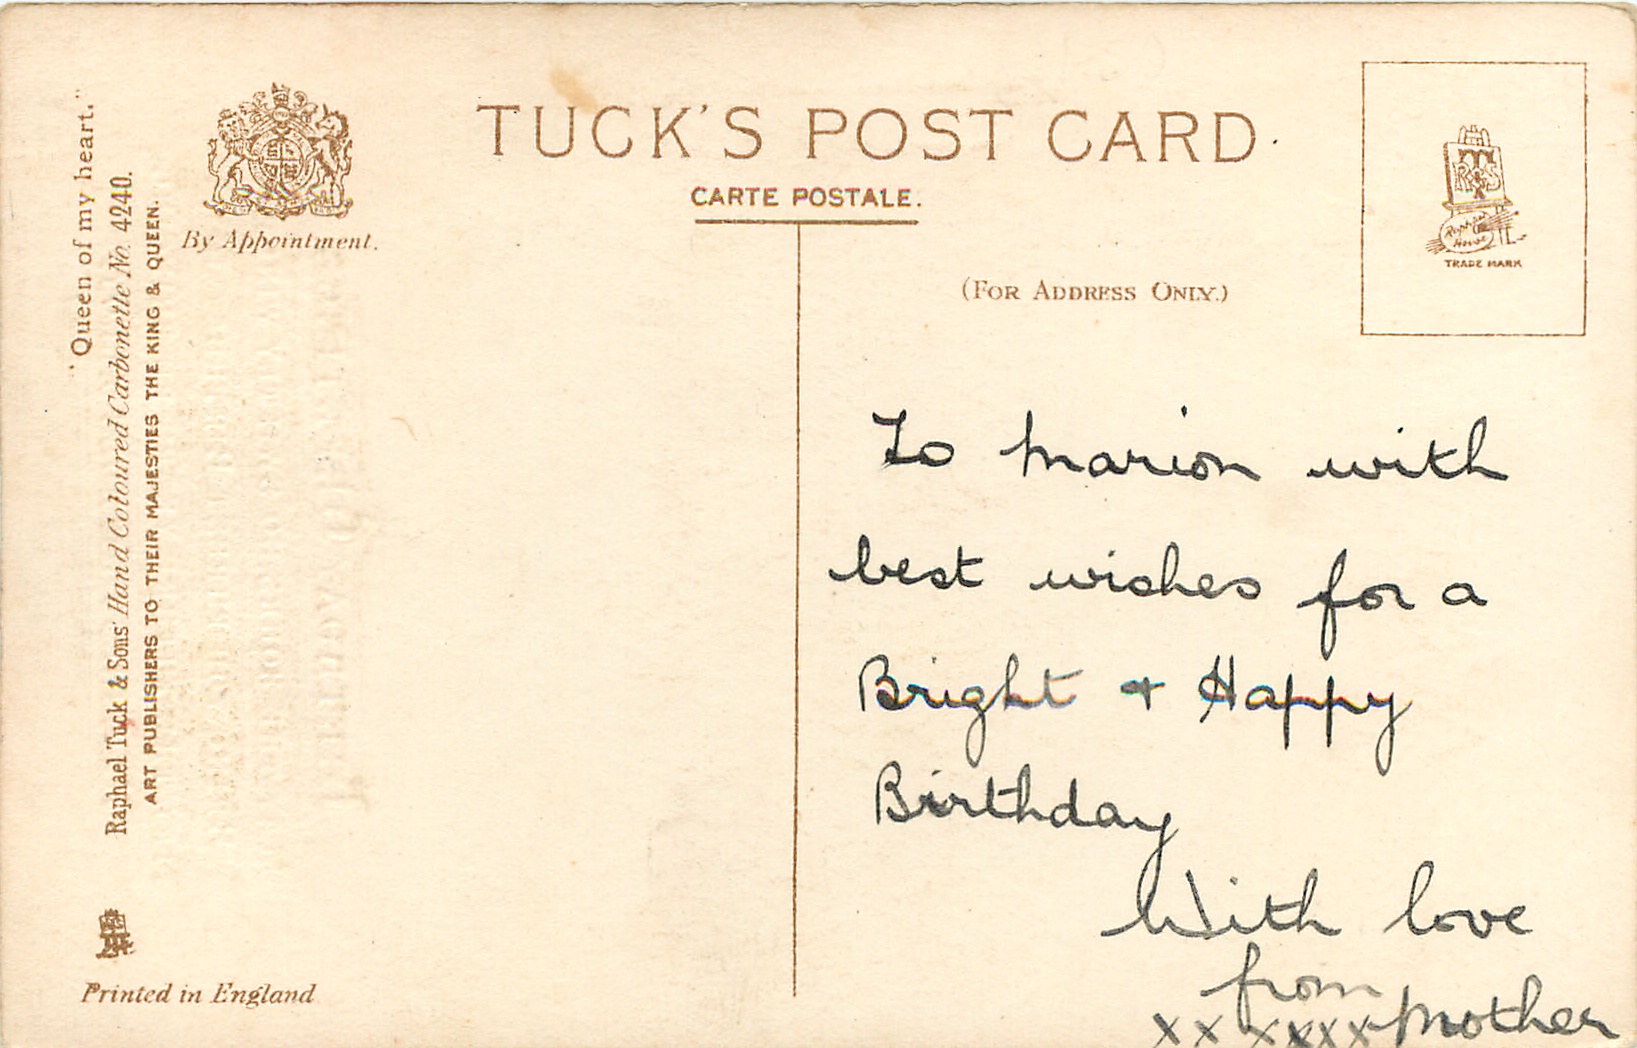 TUCK'S POST CARD
CARTE POSTALE.
(FOR ADDRESS ONLY.)
By Appointment.
"Queen of my heart."
Raphael Tuck & Sons' Hand Coloured Carbonette No. 4240.
ART PUBLISHERS TO THEIR MAJESTIES THE KING & QUEEN.
Printed in England
RTS
Raphael
House
TRADE MARK
To Marion with
best wishes for a
Bright & Happy
Birthday
With love
from
xx xxxx Mother